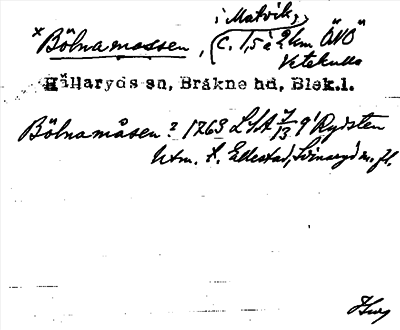 i Matvik,
x Bölnamossen, (c. 1,5 à 2 km ÖNÖ
Vetekulla
Hällaryds sn, Bräkne hd, Blek.l.
Bölnamåsen? 1763 LSA 7/13 9' Rydsten
Utm. t. Ellestad, Svinaryd m. fl.